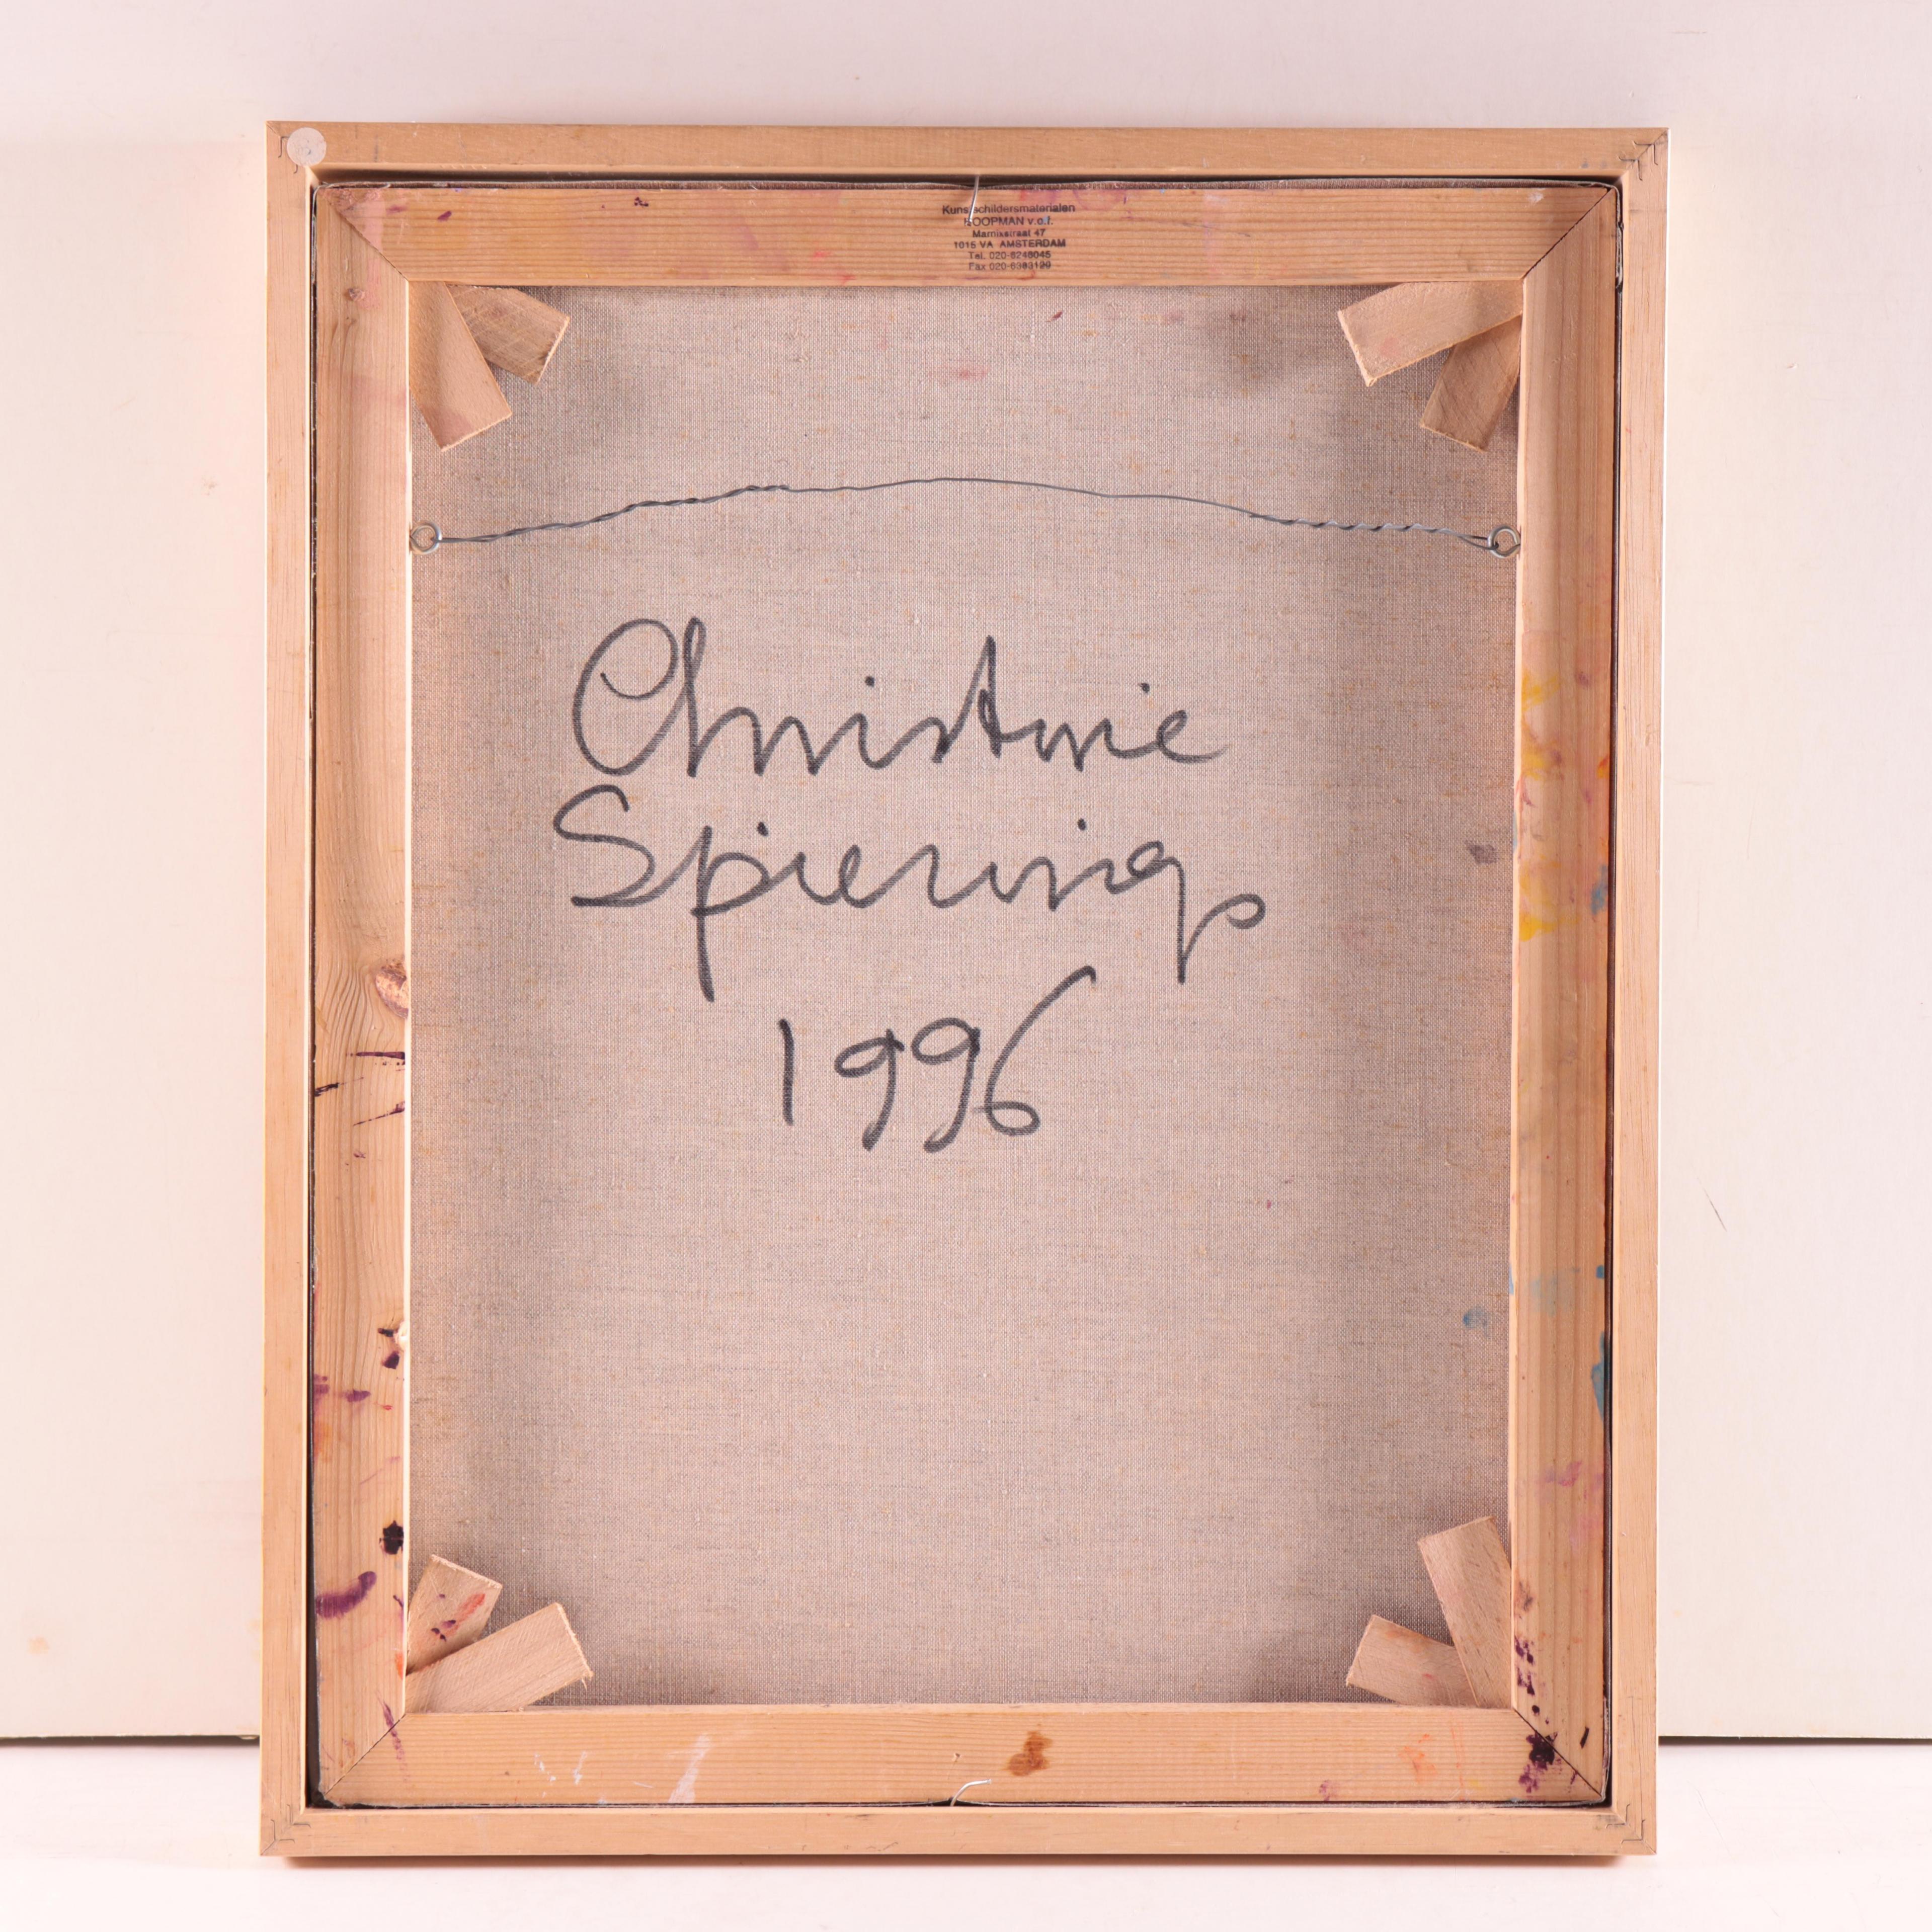 Kunstschildersmaterialen
KOOPMAN v.o.f.
Marnixstraat 47
1015 VA AMSTERDAM
Tel. 020-6246045
Fax 020-6383199
Christine
Spierings
1996